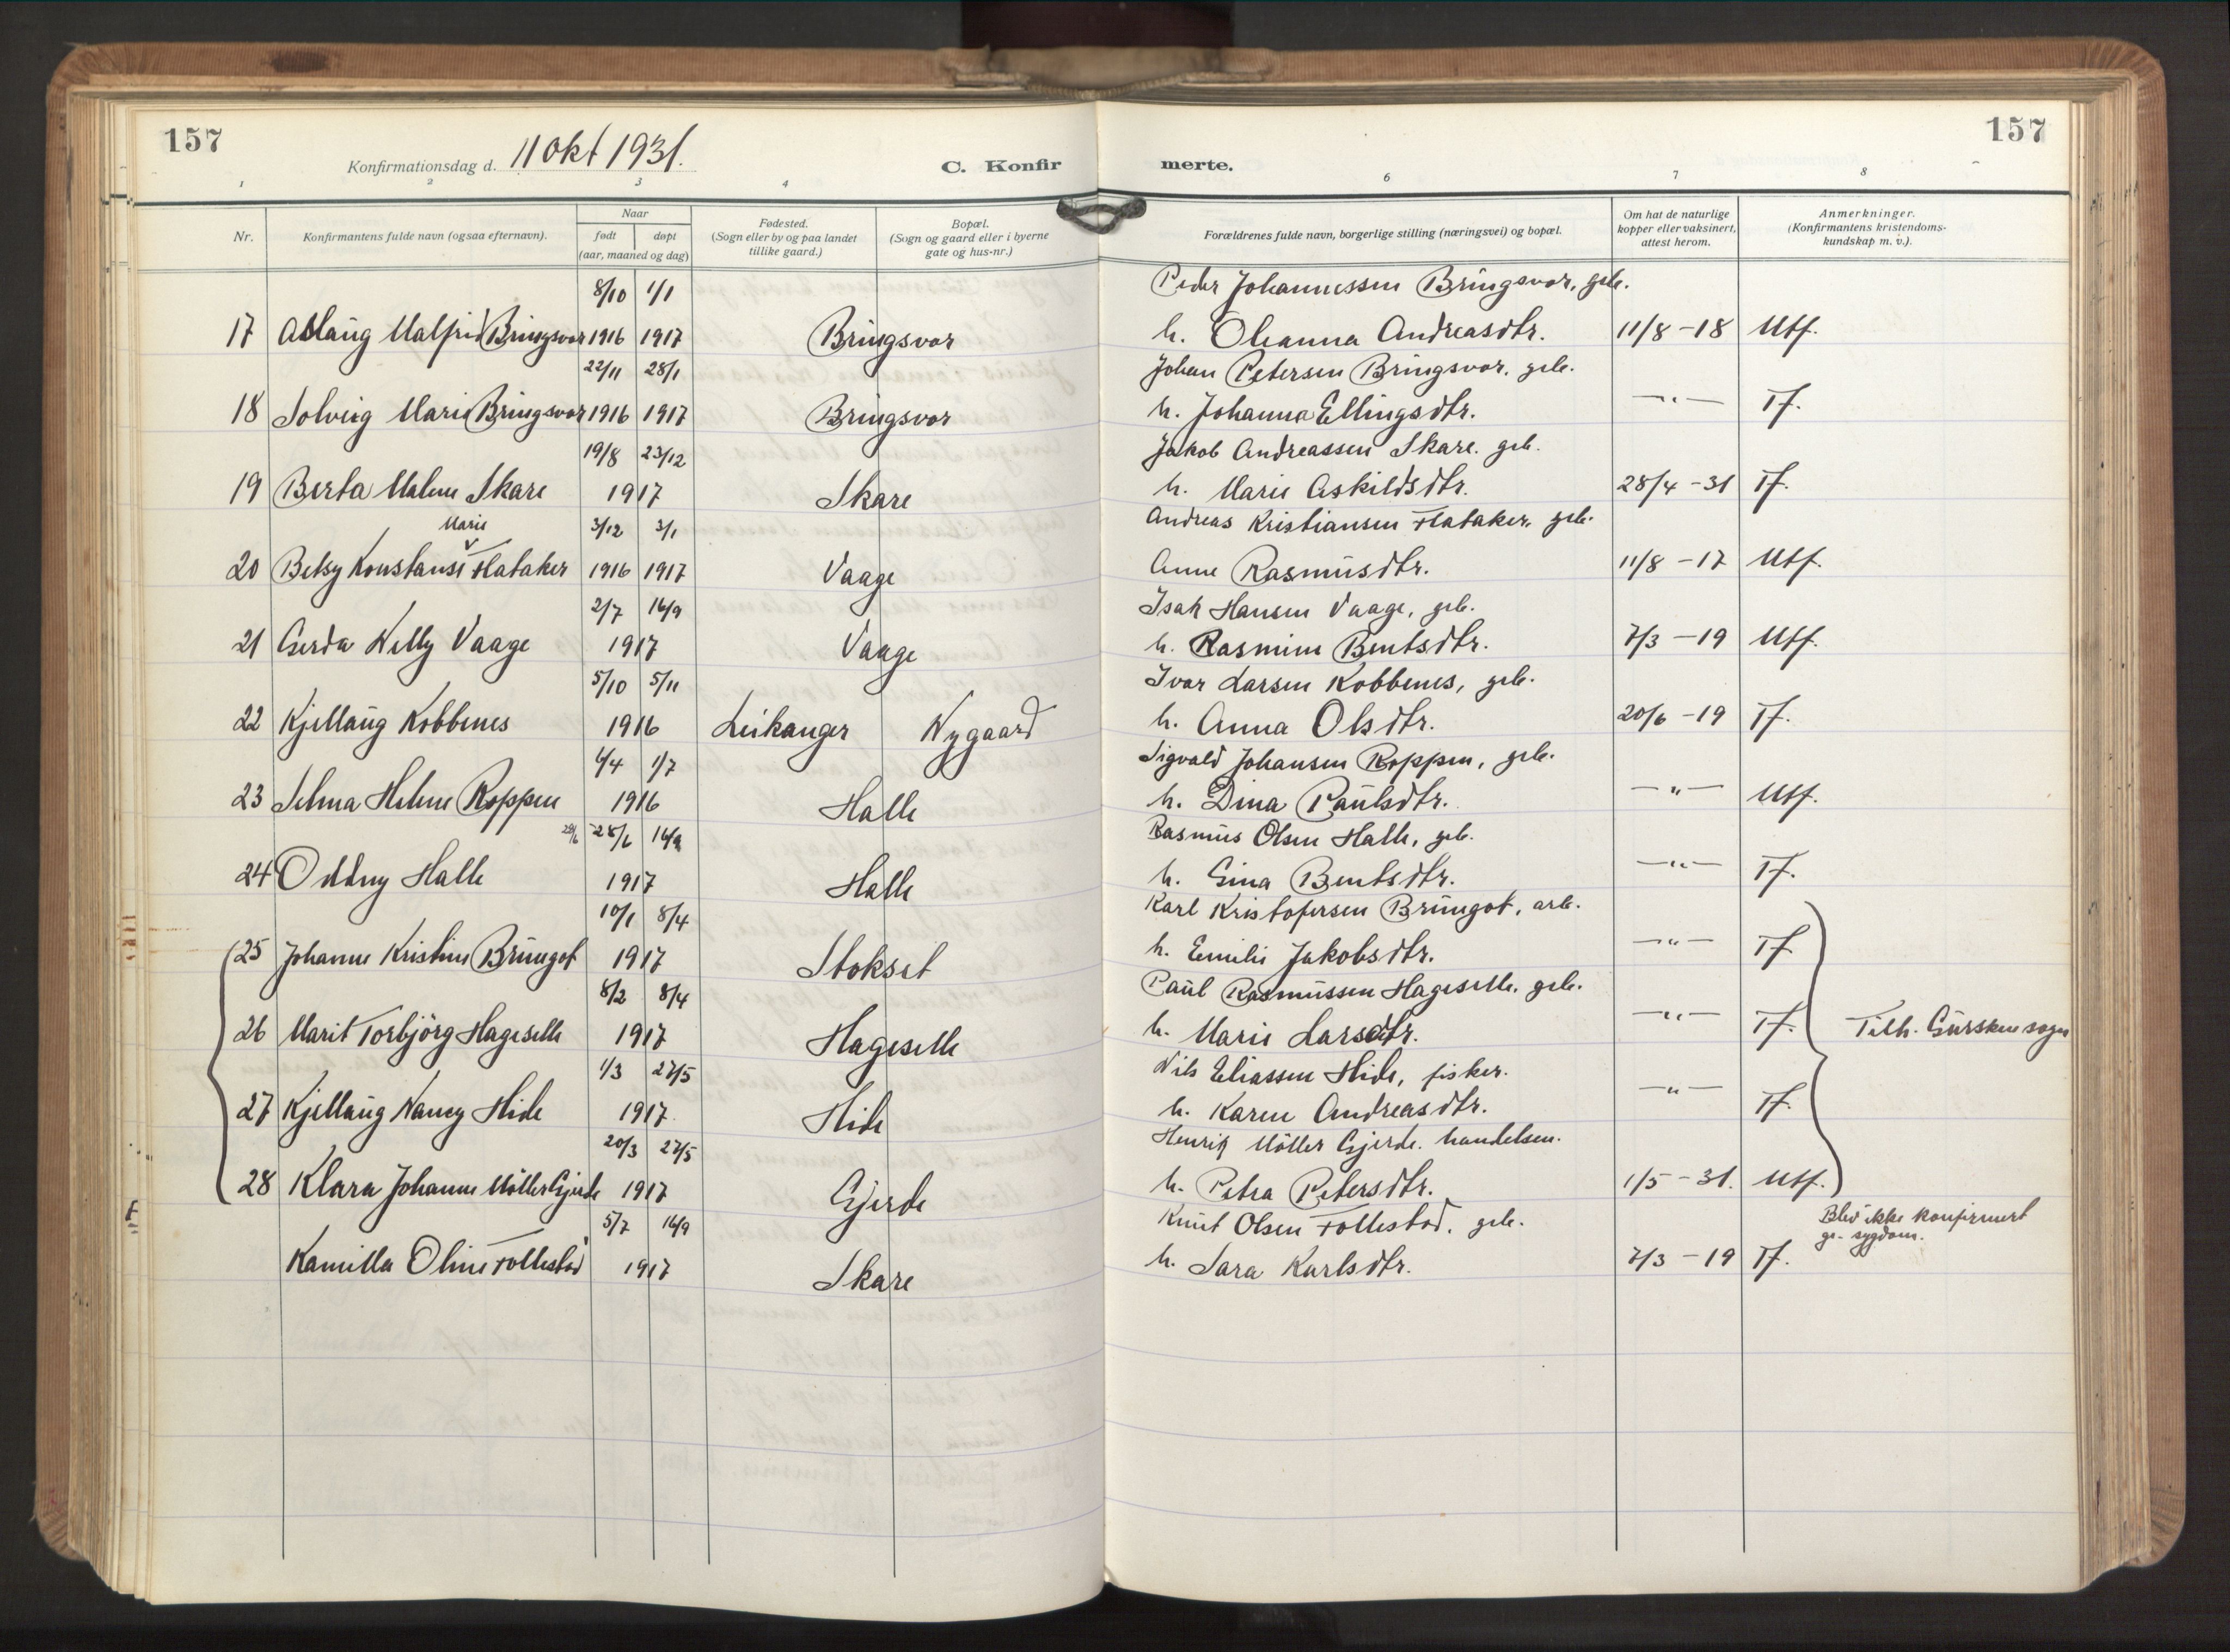 157
Konfirmationsdag d. 11 Okt 1931.
C. Konfir
merte.
157
1 2 3 4 6 7 8
Nr.
Konfirmantens fulde navn (ogsaa efternavn).
Naar
født døpt
(aar, maaned og dag)
Fødested.
(Sogn eller by og paa landet
tillike gaard.)
Bopæl.
(Sogn og gaard eller i byerne
gate og hus-nr.)
Forældrenes fulde navn, borgerlige stilling (næringsvei) og bopæl.
Om hat de naturlige
kopper eller vaksinert,
attest herom.
Anmerkninger.
(Konfirmantens kristendoms-
kundskap m. v.).
8/10 1/1 Peder Johannessen Bringsvor, grb.
17 Aslaug Malfrid Bringsvor 1916 1917 Bringsvor h. Oleanna Andreasdtr. 11/8 - 18 Utf.
22/11 28/1 Johan Petersen Bringsvor, grb.
18 Solveig Marie Bringsvor 1916 1917 Bringsvor h. Johanna Ellingsdtr. —"— Tf.
19/8 23/12 Jakob Andreassen Skare. grb.
19 Berta Malene Skare 1917 Skare h. Marie Askildsdtr. 28/4 - 31 Tf.
Marie 3/12 3/1 Andreas Kristiansen Flataker, grb.
20 Betsy Konstanse Flataker 1916 1917 Vaage Anne Rasmusdtr. 11/8 - 17 Utf.
2/7 16/9 Isak Hansen Vaage, grb.
21 Gerda Nelly Vaage 1917 Vaage h. Rasmine Bentsdtr. 7/3 - 19 Utf.
5/10 5/11 Ivar Larsen Kobbenes, grb.
22 Kjellaug Kobbenes 1916 Leikanger Nygaard h. Anna Olsdtr. 20/6 - 19 Tf.
6/4 1/7 Sigvald Johansen Roppen, grb.
23 Selma Helene Roppen 1916 Halle h. Dina Paulsdtr. —"— Utf.
28/6 28/6 16/9 Rasmus Olsen Halle, grb.
24 Oddny Halle 1917 Halle h. Gina Bentsdtr. —"— Tf.
10/1 8/4 Karl Kristofersen Brungot, arb.
25 Johanne Kristine Brungot 1917 Stokset h. Emilie Jakobsdtr. —"— Tf.
8/2 8/4 Paul Rasmussen Hageselle. grb.
26 Marit Torbjörg Hageselle 1917 Hageselle h. Marie Larsdtr. —"— Tf. Tilh. Gursken sogn
1/3 27/5 Nils Eliassen Hide, fisker.
27 Kjellaug Nancy Hide 1917. Hide h. Karen Andreasdtr. —"— Tf.
20/3 27/5 Henrik Möller Gjerde. handelsm.
28 Klara Johanne Möller Gjerde 1917 Gjerde h. Petra Petersdtr. 1/5 - 31. Utf.
5/7 16/9 Knut Olsen Follestad. grb. Blev ikke konfirmert
gr. sygdom.
Kamilla Oline Follestad 1917 Skare h. Sara Karlsdtr. 7/3 - 19 Tf.